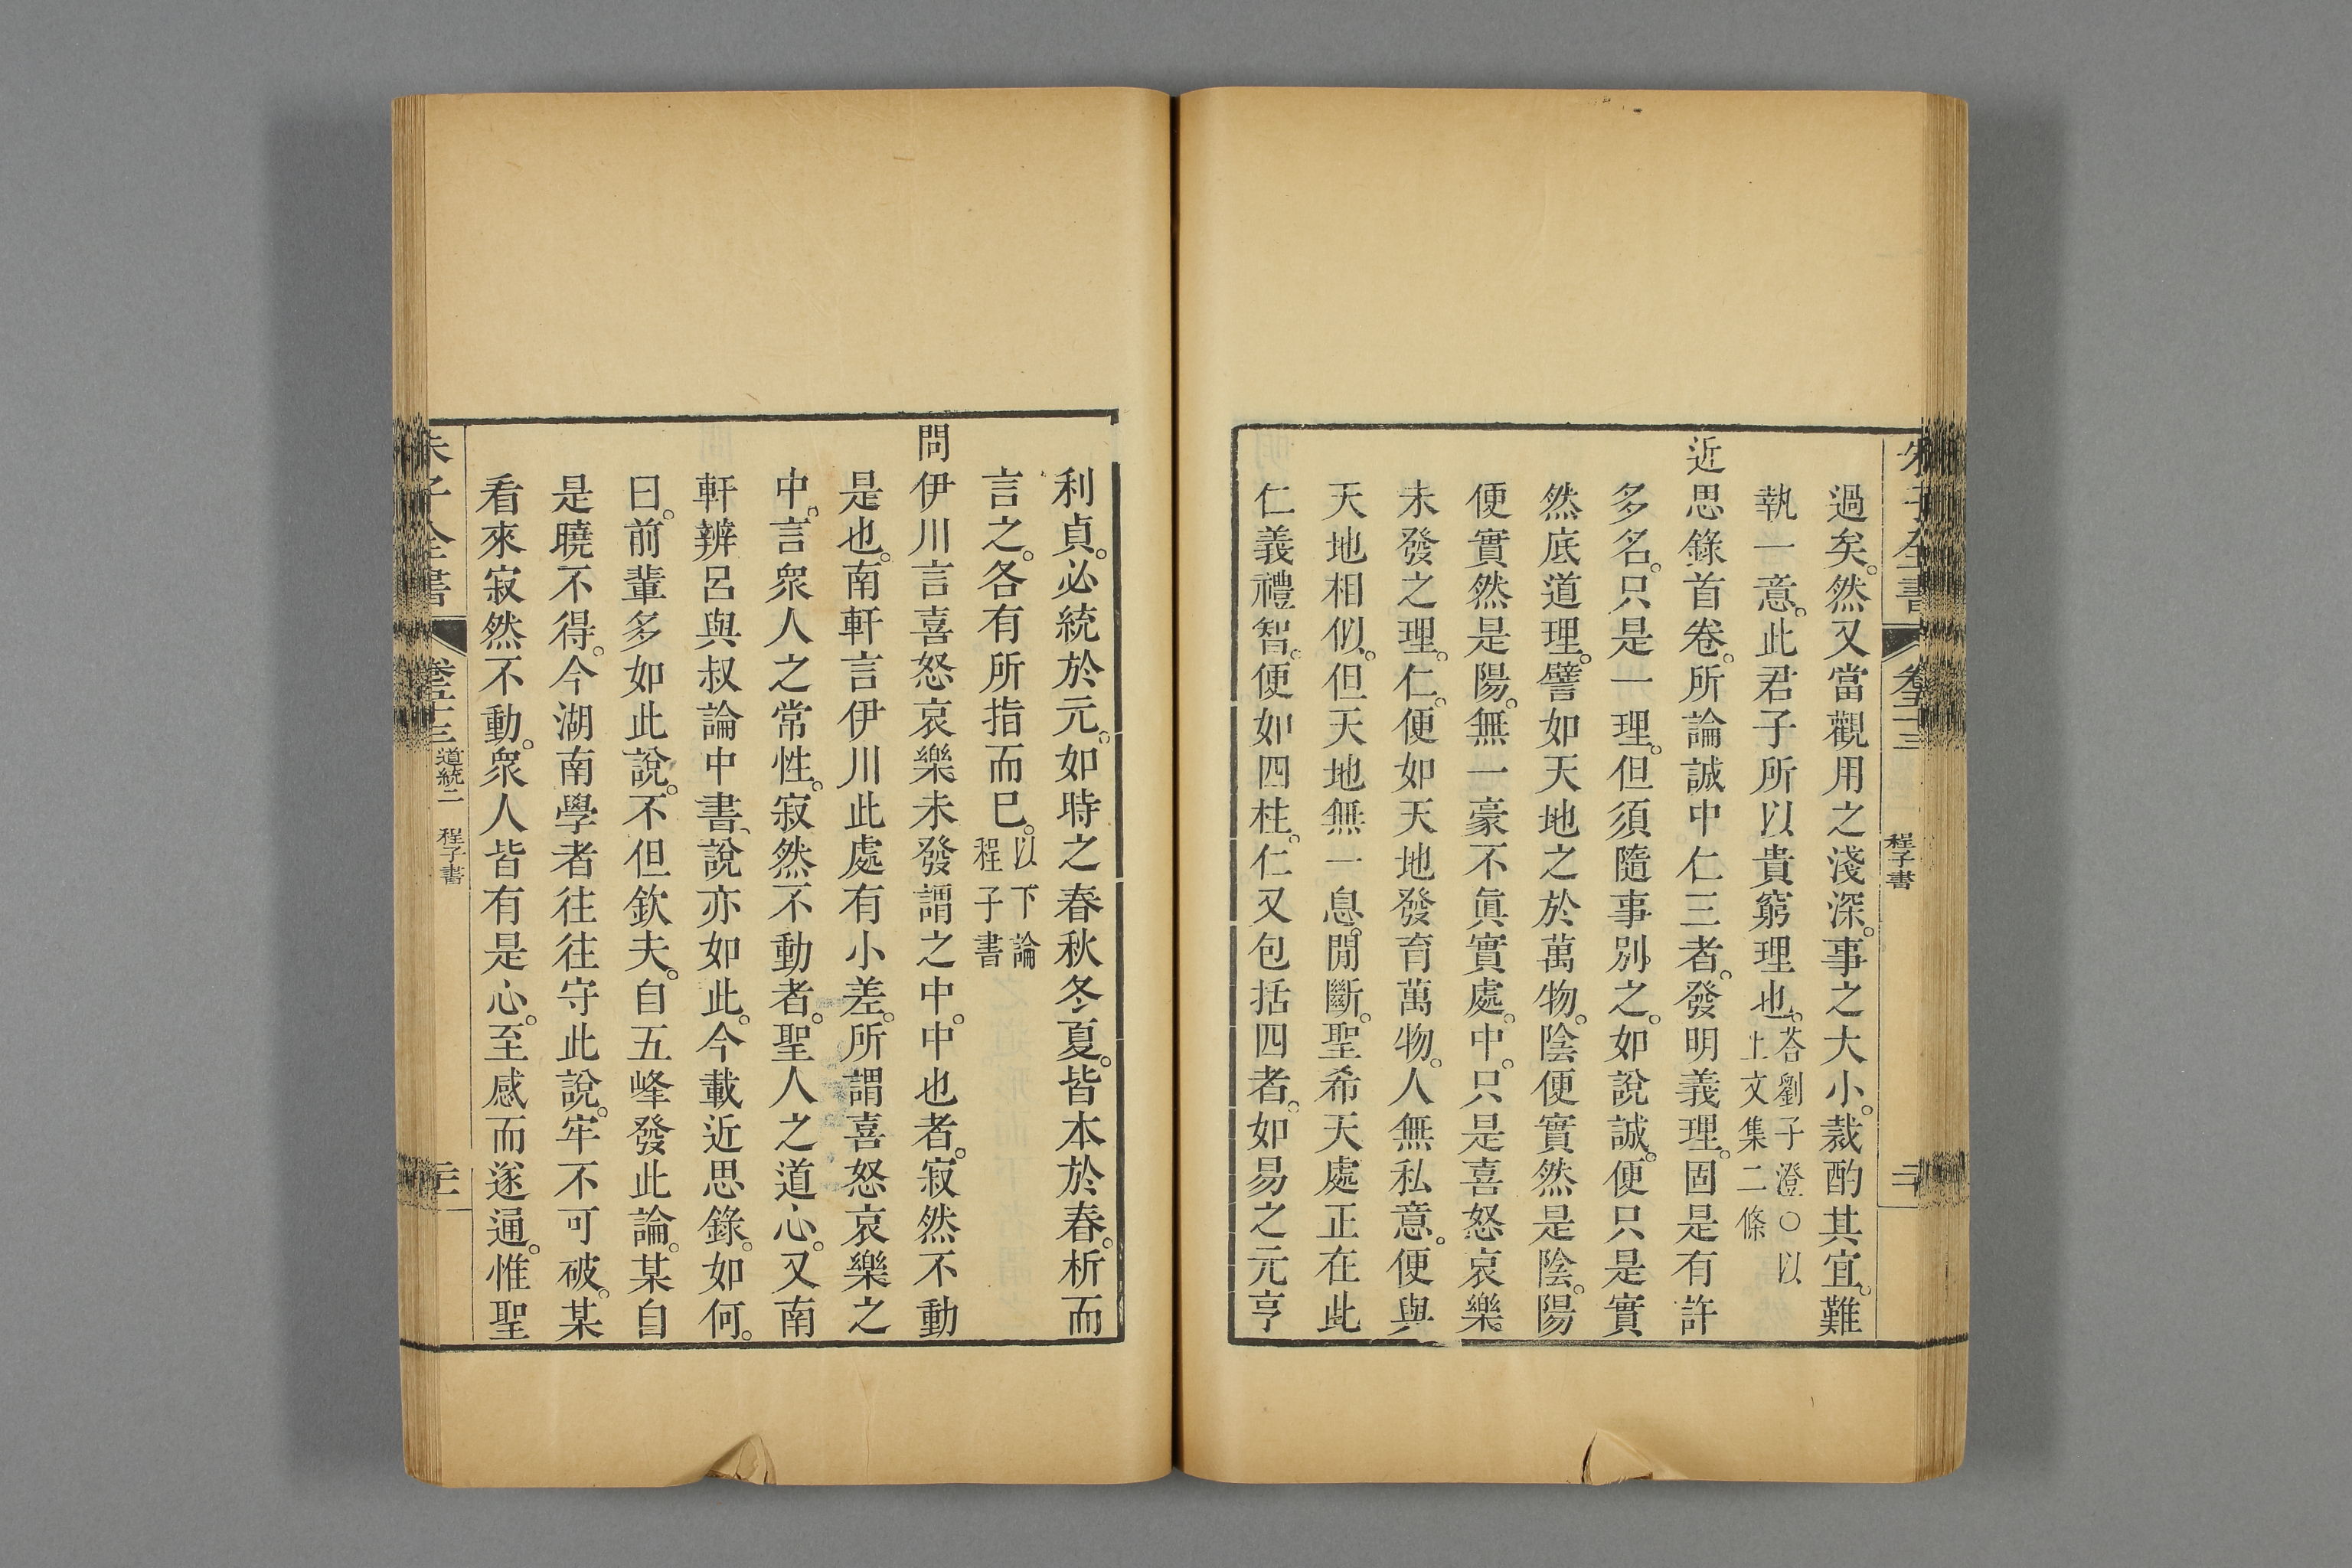 過矣。然又當觀用之淺深。事之大小。裁酌其宜。難
執一意。此君子所以貴窮理也。荅劉子澄○以
上文集二條
近思錄首卷。所論誠中仁三者。發明義理。固是有許
多名。只是一理。但須隨事別之。如說誠。便只是實
然底道理。譬如天地之於萬物。陰便實然是陰。陽
便實然是陽。無一豪不眞實處。中。只是喜怒哀樂。
未發之理。仁。便如天地發育萬物。人無私意。便與
天地相似。但天地無一息。閒斷。聖希天處正在此
仁義禮智。便如四柱。仁又包括四者。如易之元亨
程子書
利貞。必統於元。如時之春秋冬夏。皆本於春。析而
言之。各有所指而已。以下論
程子書
問伊川言喜怒哀樂未發謂之中。中也者。寂然不動
是也。南軒言伊川此處有小差。所謂喜怒哀樂之
中。言衆人之常性。寂然不動者。聖人之道心。又南
軒辨呂與叔論中書、說亦如此。今載近思錄。如何。
曰。前輩多如此說。不但欽夫。自五峰發此論。某自
是曉不得。今湖南學者往往守此說。牢不可破。某
看來寂然不動。衆人皆有是心。至感而遂通。惟聖
朱子全書 卷五十三 道統二 程子書